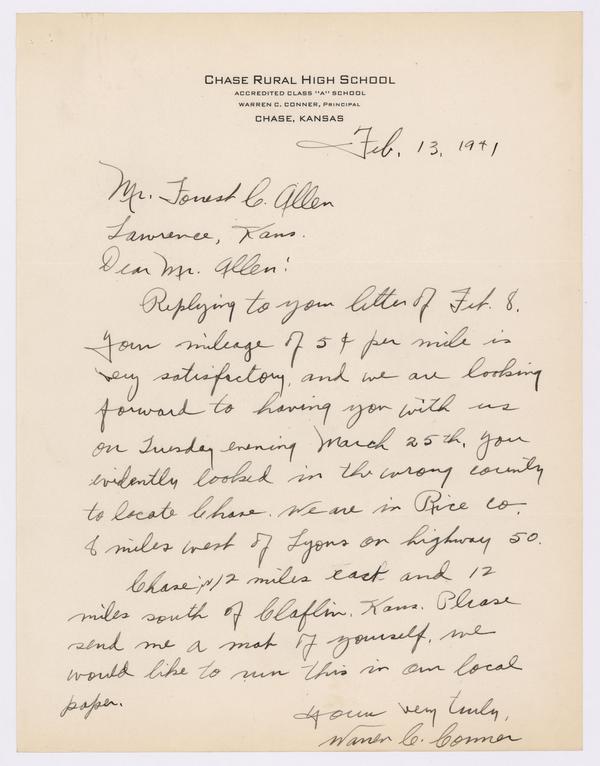 CHASE RURAL HIGH SCHOOL
ACCREDITED CLASS "A" SCHOOL
WARREN C. CONNER, PRINCIPAL
CHASE, KANSAS
Feb. 13, 1941
Mr. Forrest C. Allen
Lawrence, Kans.
Dear Mr. Allen:
Replying to your letter of Feb. 8.
Your mileage of 5¢ per mile is
very satisfactory, and we are looking
forward to having you with us
on Tuesday evening March 25th. You
evidently looked in the wrong county
to locate Chase. We are in Rice Co.
8 miles west of Lyons on highway 50.
Chase is 12 miles east and 12
miles south of Claflin, Kans. Please
send me a mat of yourself, we
would like to run this in our local
paper.
Yours very truly,
Warren C. Conner